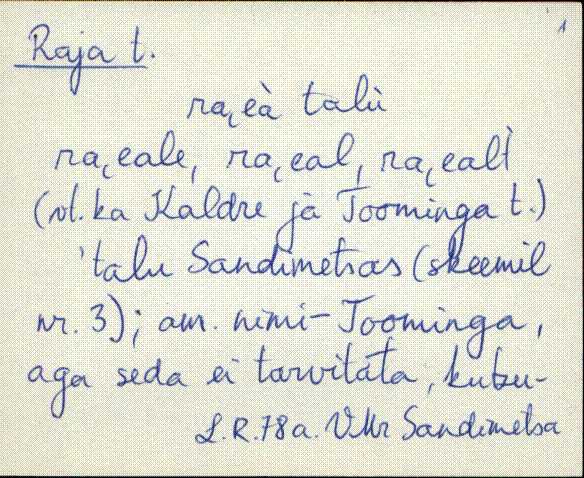 1
Raja t.
ra͔eà talù
ra͔eale, ra͔eal, ra͔ealt̀
(vt. ka Kaldre jà Toominga t.)
'talu Sandimetsas (skeemil
nr. 3); am. nimi - Toominga,
aga seda ei tarvitata, kutsu-
L.R. 78 a. VMr Sandimetsa